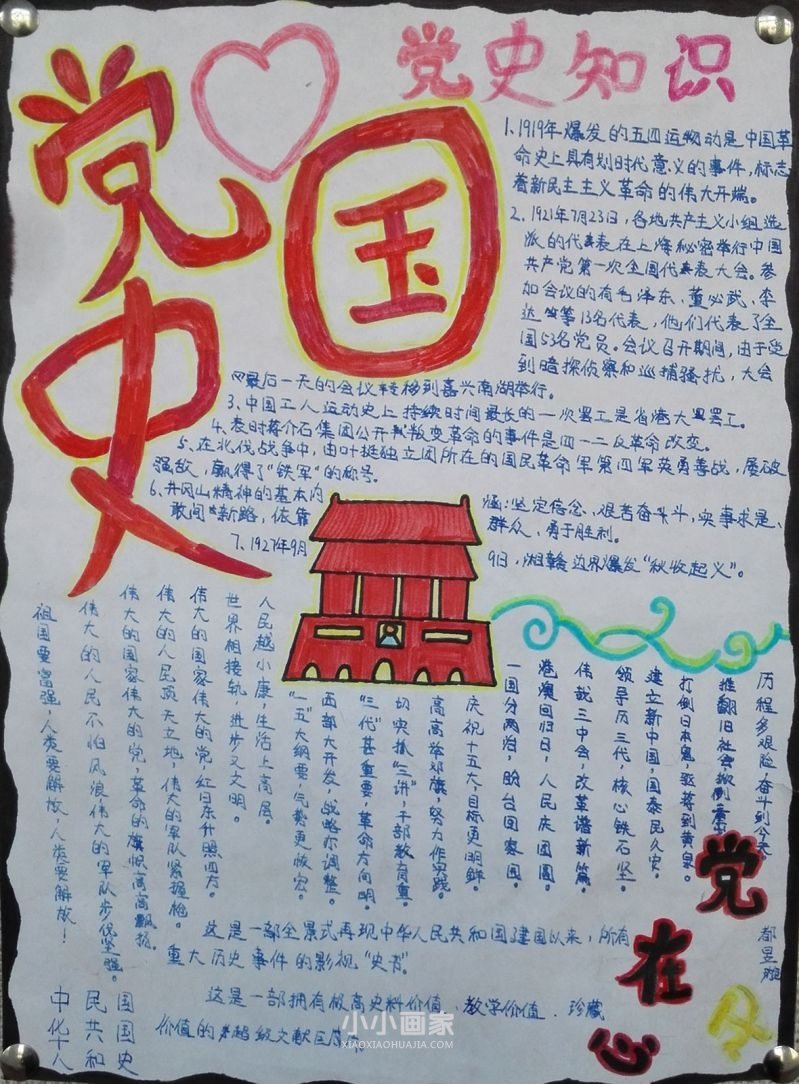 党史
国
党史知识
1、1919年爆发的五四运动是中国革
命史上具有划时代意义的事件,标志
着新民主主义革命的伟大开端。
2、1921年7月23日,各地共产主义小组选
派的代表在上海秘密举行中国
共产党第一次全国代表大会。参
加会议的有毛泽东、董必武、李
达等13名代表,他们代表了全
国53名党员。会议召开期间,由于受
到暗探侦察和巡捕骚扰,大会
最后一天的会议转移到嘉兴南湖举行。
3、中国工人运动史上持续时间最长的一次罢工是省港大罢工。
4、表时蒋介石集团公开叛变革命的事件是四一二反革命改变。
5、在北伐战争中,由叶挺独立团所在的国民革命军第四军英勇善战,屡破
强敌,赢得了“铁军”的称号。
6、井冈山精神的基本内涵:坚定信念、艰苦奋斗,实事求是、
敢闯新路,依靠群众、勇于胜利。
7、1927年9月9日,湘赣边界爆发“秋收起义”。
历程多艰险,奋斗到今天
推翻旧社会,掀倒
打倒日本鬼,蒋到黄泉。
建立新中国,国泰民久安。
领导历三代,核心铁石坚。
伟哉三中会,改革谱新篇。
港澳回归日,人民庆团圆。
一国分两治,盼台回家园。
庆祝十五大,目标更明鲜。
高高举邓旗,努力作实践。
切实抓“三讲”,干部教育重。
“三代”甚重要,革命方向明。
西部大开发,战略亦调整。
“一五”大纲要,气势更恢宏。
人民越小康,生活上高层。
世界相接轨,进步又文明。
伟大的国家伟大的党,红日东升照四方。
伟大的人民顶天立地,伟大的军队紧握枪。
伟大的国家伟大的党,革命的旗帜高高飘扬。
伟大的人民不怕风浪,伟大的军队步伐坚强。
祖国要富强,人类要解放,人类要解放!
这是一部全景式再现中华人民共和国建国以来,所有
重大历史事件的影视“史书”。
这是一部拥有极高史料价值、教学价值、珍藏
价值的超级文献
中华人
民共和
国国史
党在心
小小画家
XIAOXIAOHUAJIA.COM